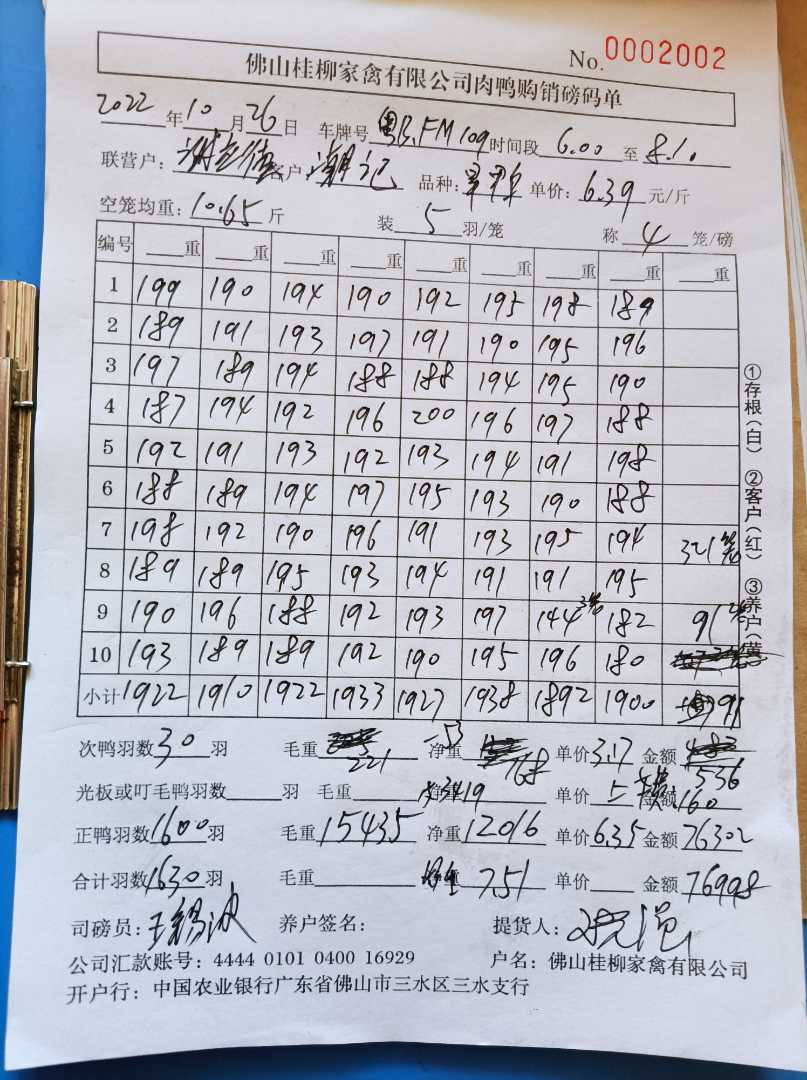 No. 0002002
佛山桂柳家禽有限公司肉鸭购销磅码单
2022年10月26日 车牌号 粤B.FM109 时间段 6.00 至 8.10
联营户: 客户: 潮记 品种: 单价: 6.39 元/斤
空笼均重: 10.65 斤 装 5 羽/笼 称 4 笼/磅
编号 重 重 重 重 重 重 重 重 重
1 199 190 194 190 192 195 198 189
2 189 191 193 197 191 190 195 196
3 197 189 194 188 188 194 195 190
4 187 194 192 196 200 196 197 188
5 192 191 193 192 193 194 191 198
6 188 189 194 197 195 193 190 188
7 198 192 190 196 191 193 195 194 321笼
8 189 189 195 193 194 191 191 195
9 190 196 188 192 193 197 144 3笼 182 91
10 193 189 189 192 190 195 196 180
小计 1922 1910 1922 1933 1927 1938 1892 1900 91
①存根(白) ②客户(红) ③养户(黄)
次鸭羽数 30 羽 毛重 221 -53 净重 168 单价 3.17 金额 536
光板或叮毛鸭羽数 羽 毛重 3419 单价 5 金额 160
正鸭羽数 1600 羽 毛重 15435 净重 12016 单价 6.35 金额 76302
合计羽数 1630 羽 毛重 7.51 单价 金额 76998
司磅员: 王锡波 养户签名: 提货人:
公司汇款账号: 4444 0101 0400 16929 户名: 佛山桂柳家禽有限公司
开户行: 中国农业银行广东省佛山市三水区三水支行